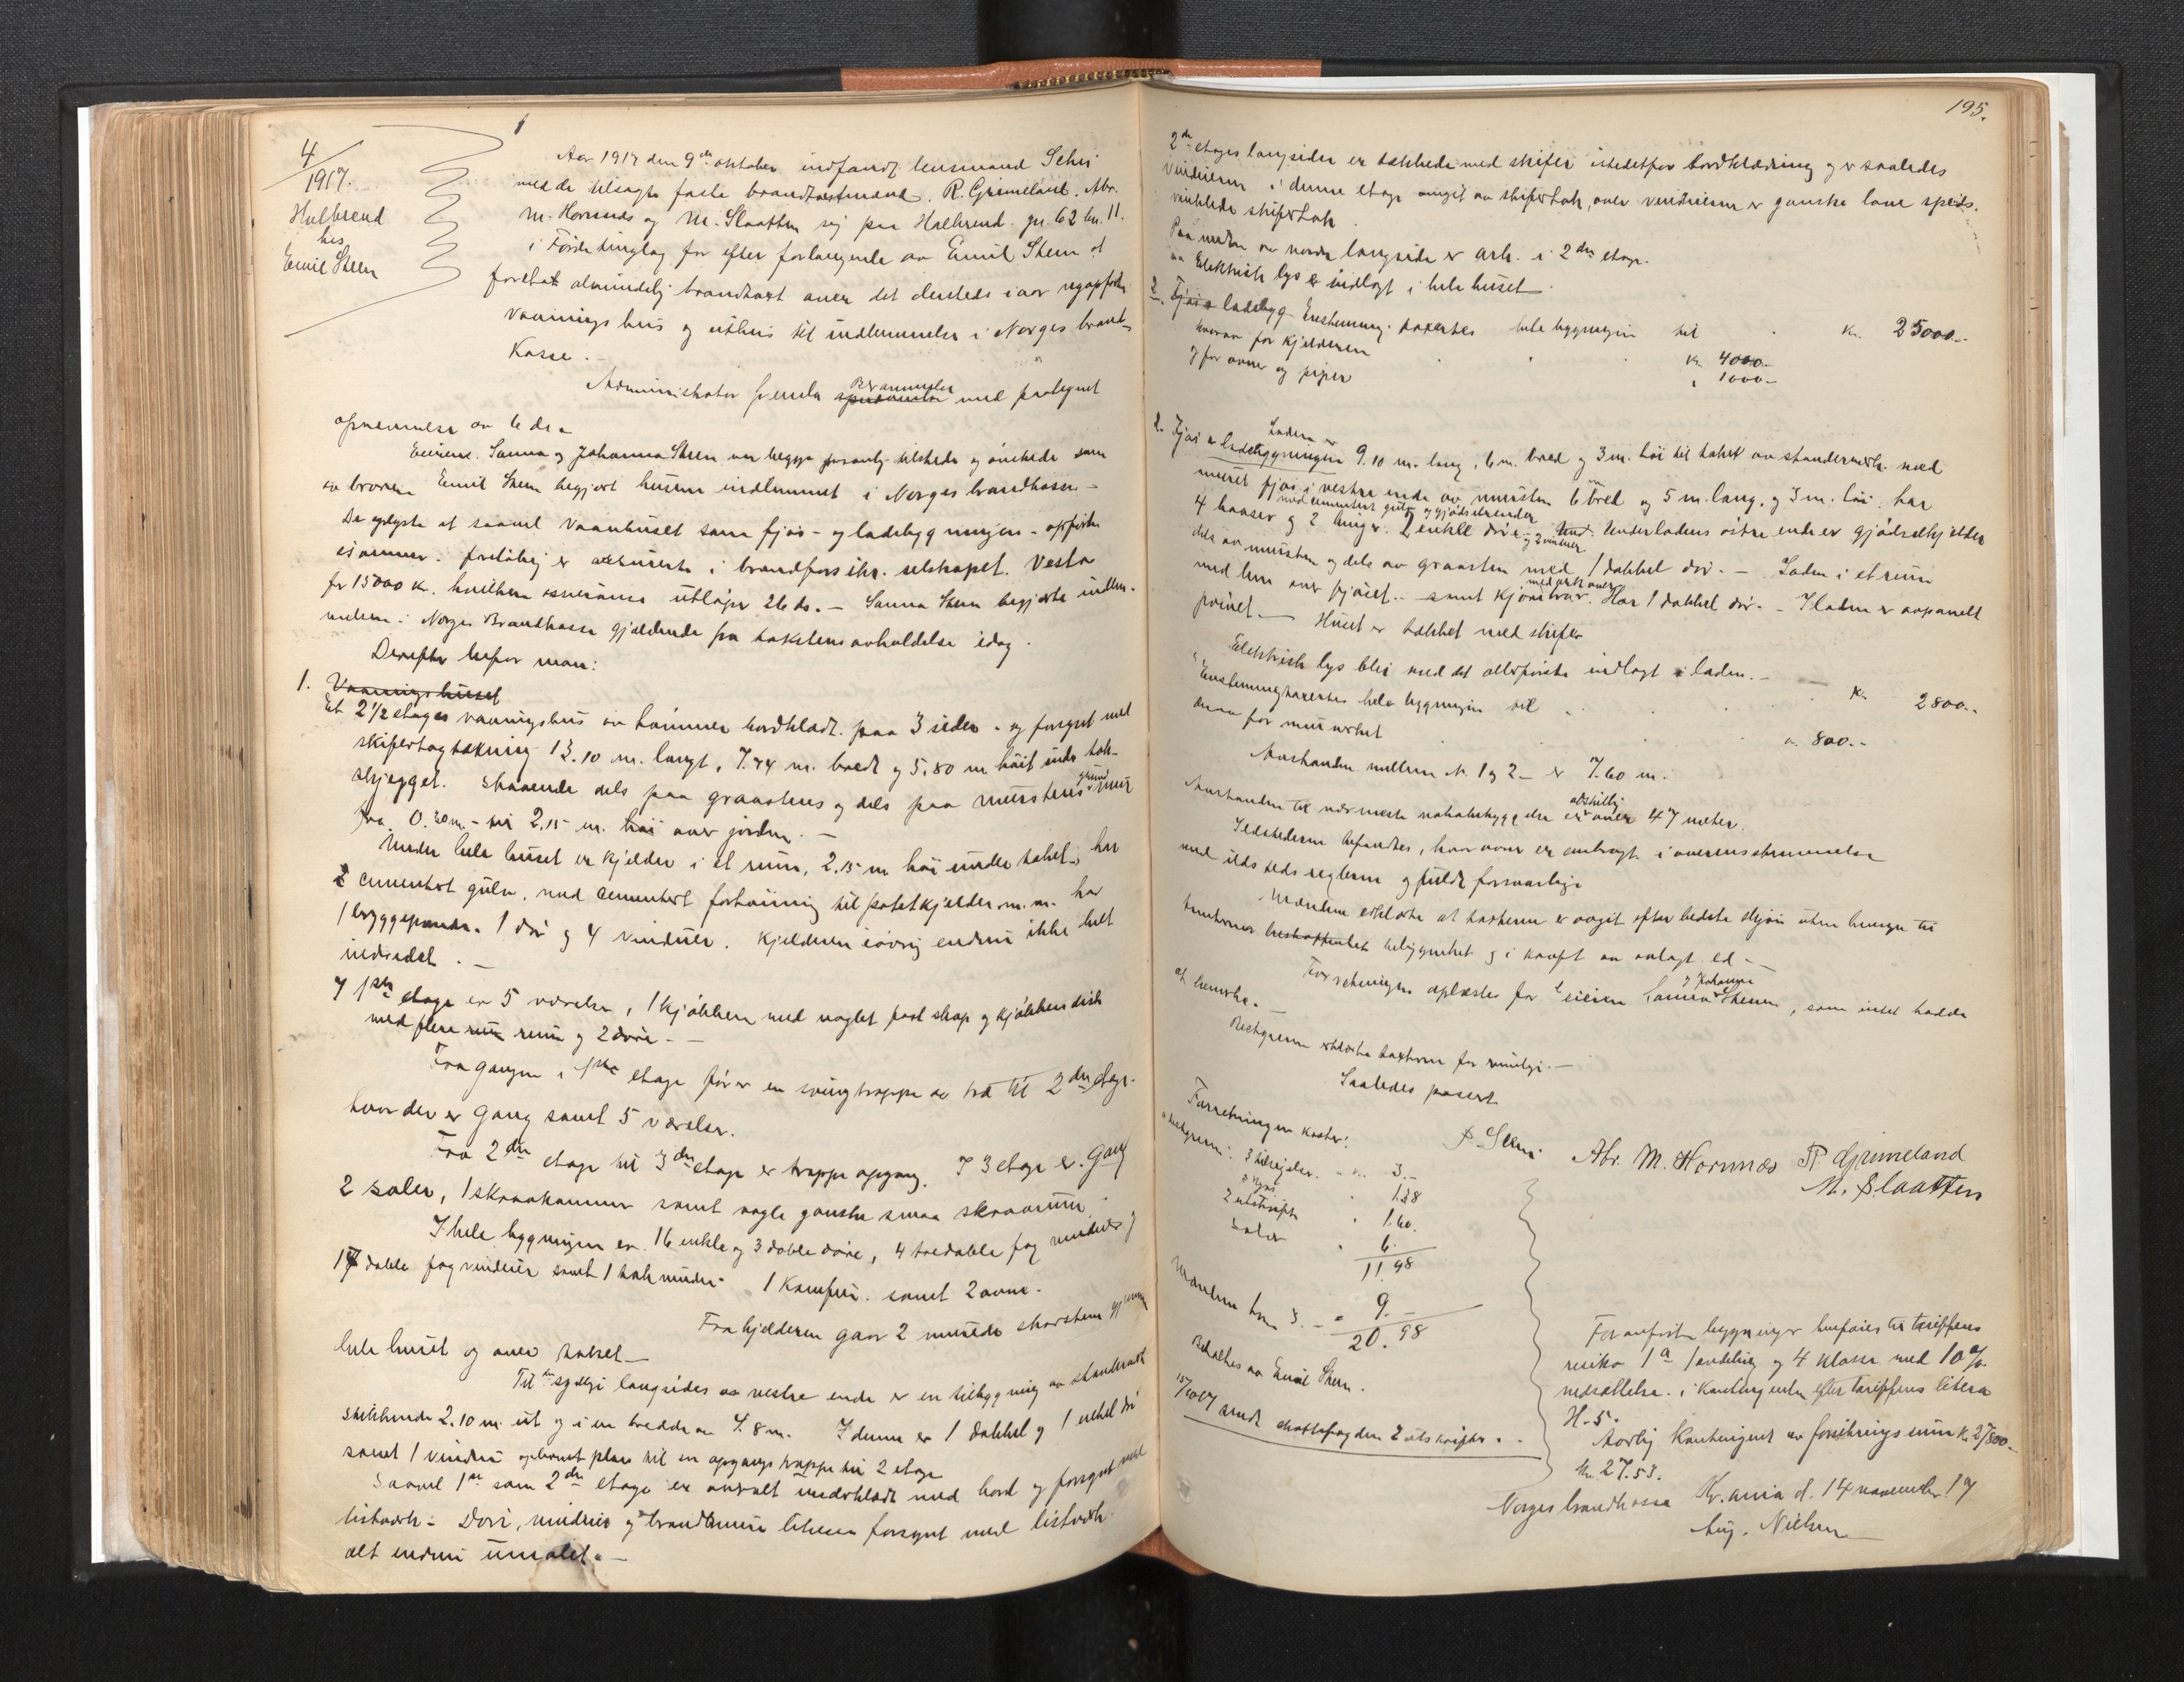 4/1917.
Hulbrend
hos
Emil Steen
Aar 1917 den 9de oktober indfandt lensmand Sehi
med de tilsagte faste brandtakstmænd. R. Grimeland. Abr.
M. Hornnæs og M. Slaatten sig paa Halbrend. gn. 62 bn. 11.
i Førde tinglag for efter forlangende av Emil Steen at
foretat almindelig brandtaxt over det dersteds iaar nyopførte
vaaningshus og uthus til indlemmelse i Norges brand-
kasse.
Administrator fremla Berammelse med paategnet
opnevnelse av 6 ds.
Eierne. Sanna og Johanna Steen var begge personlig tilstede og ønskede som
av broren Emil Steen begjært husene indlemmet i Norges brandkasse.-
De oplyste at saavel vaanhuset som fjøs- og ladebygningen - opførtes
isommer. foreløbig er assurerte i brandforsikr. selskapet. Vesta
for 15000 kr. hvilken assurance utløper 26 ds. - Sanna Steen begjærte indlem-
melsen i Norges Brandkasse gjældende fra takstens avholdelse idag.
Derefter befor man:
1. Vaaningshuset
Et 2 1/2 etages vaaningshus av tømmer bordklædt. paa 3 sider - og forsynt med
skifertagtækning 13.10 m. langt, 7.74 m. bredt og 5.80 m høit under tak-
skjægget. staaende dels paa graastens og dels paa murstens grundmur
fra 0.30 m. - til 2.15 m. høi over jorden. -
Under hele huset er kjelder i et rum, 2.15 m høi under taket, har
cementert gulv, med cementert forhøining til potetkjelder m. m. har
1 bryggepande. 1 dør og 4 vinduer. Kjelderen iøvrig endnu ikke helt
inredet. -
I 1ste etage er 5 værelser, 1 kjøkken med noglet fast skap og kjøkkendisk
med flere rum og 2 døre. -
Fra gangen i 1ste etage fører en svingtrappe av træ til 2den etage.
hvor der er gang samt 5 værelser.
Fra 2den etage til 3die etage er trappe opgang. I 3 etage er. gang
2 saler, 1 skraakammer samt nogle ganske smaa skraarum.
I hele bygningen er 16 enkle og 3 doble døre, 4 tredoble fag vinduer og
17 doble fag vinduer samt 1 tak vindu. 1 komfur. samt 2 ovne.
Fra kjelderen gaar 2 murede skorstene gjennem
hele huset og over taket. -
Til den sydlige langsides vestre ende er en tilbygning av standværk
stikkende 2.10 m. ut og i en bredde av 4.8 m. I denne er 1 dobbel og 1 enkel dør
samt 1 vindu og levnet plas til en opgangs trappe til 2 etage
Saavel 1ste som 2den etage er overalt indvklædt med bord og forsynt med
listværk - Døre, vinduer og brandmure likesaa forsynt med listværk
alt endnu umalet. -
195.
2den etages langsider er tækkede med skifer istedetfor bordklædning og er saaledes
vinduerne i denne etage omgit av skifertak, over vinduerne er ganske lave spids.
vinklede skifertak.
Paa midten av nordre langside er ark. i 2den etage.
Elektrisk lys er indlagt i hele huset.
2. Fjøs ladebyg Enstemmig taxertes hele bygningen til kr. 25000.-
hvorav for kjelderen kr. 4000.-
og for ovner og piper " 1000.-
2. Fjøs og ladebygningen Laden er 9.10 m. lang, 6 m. bred og 3 m. høi til taket av standerverk. med
muret fjøs i vestre ende av mursten 6 m bred og 5 m. lang. og 3 m. høi. har
4 baaser og 2 binger. med cementert gulv og gjødselrender 2 enkle døre - og 2 vinduer Underladens østre ende er gjødselkjelder
dels av mursten og dels av graasten med 1 dobbel dør. - Laden i et rum
med lem over fjøset. - samt kjørebro. med ark over Har 1 dobbel dør. - I laden er aapanelt
priver. - Huset er tækket med skifer
Elektrisk lys blir med det allerførste indlagt i laden. -
Enstemmig taxertes hele bygningen til kr. 2800.-
derav for murverket kr. 800.-
Avstanden mellem N. 1 og 2 - er 7.60 m.
Avstanden til nærmeste nabobebyggelse er adskillig over 47 meter.
Ildstederne befandtes, hvor ovne er anbragt i overensstemmelse
med ildsteds reglerne og fuldt forsvarlige
Mændene erklærte at taxterne er avgit efter bedste skjøn uten hensyn til
tomternes beskaffenhet beliggenhet og i kraft av avlagt ed -
Forretningen oplæstes for eierne Sanna og Johanna Steen, som intet hadde
at bemerke.
Bestyreren erklærte taxterne for rimelige. -
Saaledes passert
P. Sehi. Abr. M. Hornnæs R. Grimeland
M. Slaatten
Forretningen koster:
3.-
1.38
2 utskrift " 1.60.
6.-
11.98
Mændene hver 3.- " 9.-
20.98
Betaltes av Emil Steen.
15/10 17 sendt skattefogden 2 utskrifter. -
For anførte bygninger henføres til tariffens
risiko 1a 1 avdeling og 4 klasse med 10 %
nedsættelse. i kontingenten efter tariffens litera
H. 5.
Aarlig Kontingent av forsikringssum Kr. 27800.-
Kr. 27.53.
Norges brandkasse Kr.ania d. 14 november 17
Aug. Nielsen